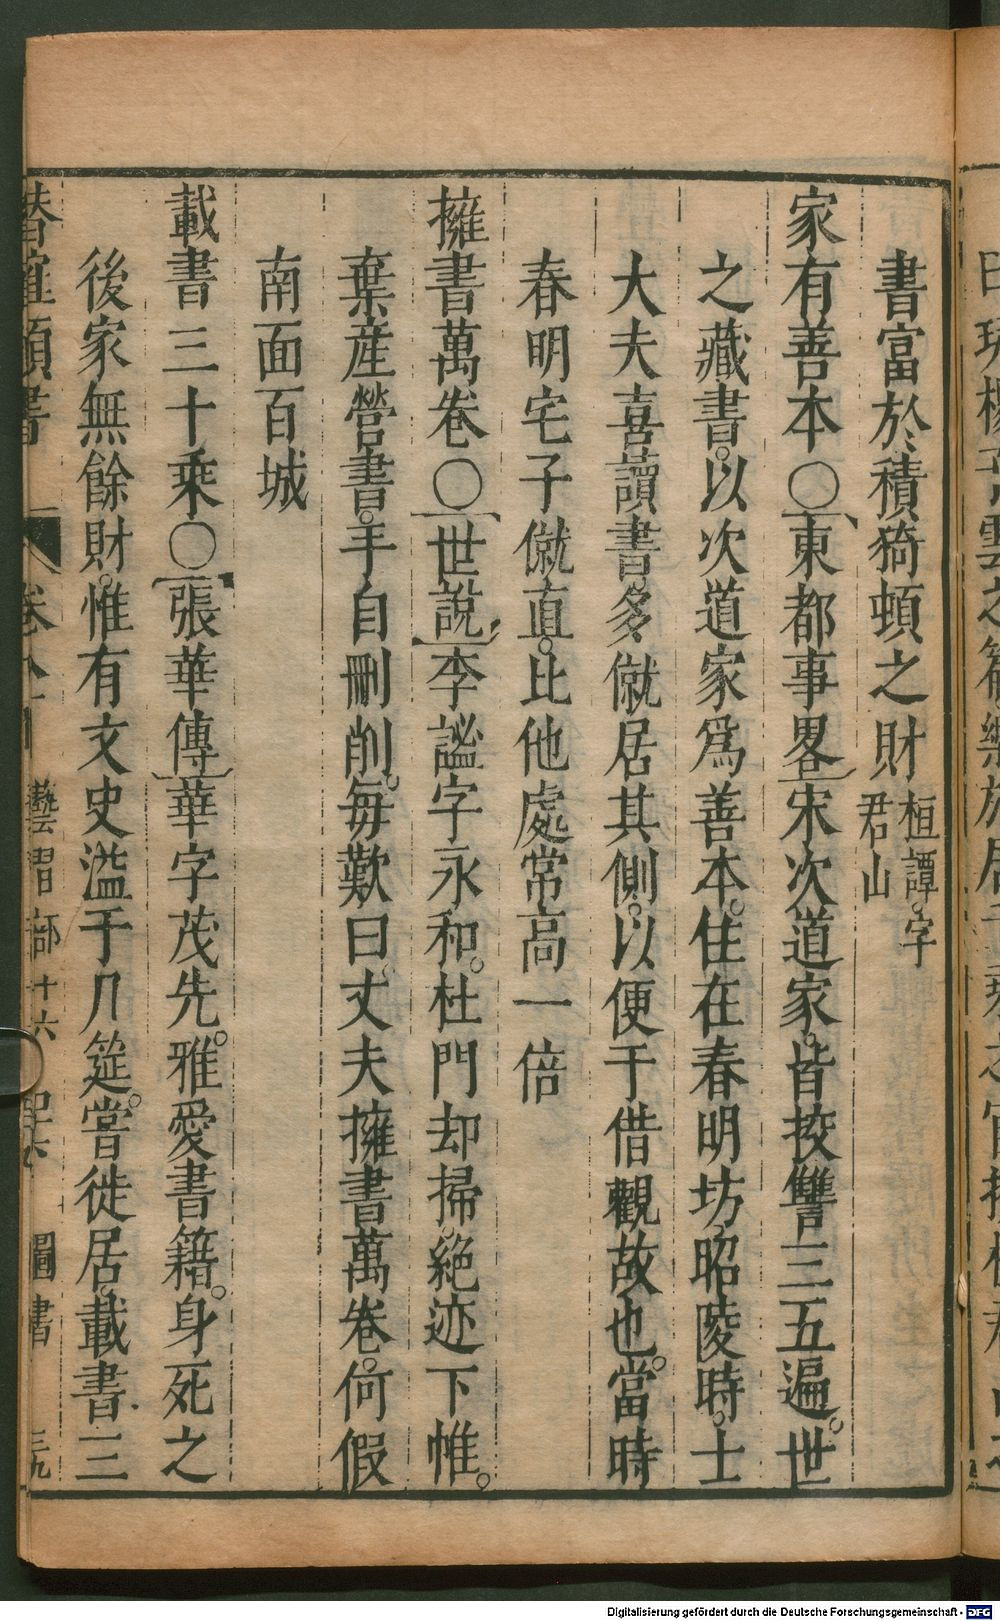 書富於積猗頓之財桓譚字君山
家有善本○東都事畧宋次道家。皆挍讐三五遍。世
之藏書。以次道家爲善本。住在春明坊。昭陵時。士
大夫喜讀書。多僦居其側。以便于借觀故也。當時
春明宅子僦直。比他處常高一倍
擁書萬卷○世說李謐字永和。杜門却掃。絕迹下帷。
棄産營書。手自刪削。每歎曰丈夫擁書萬卷。何假
南面百城
載書三十乘○張華傳華字茂先。雅愛書籍。身死之
後家無餘財。惟有文史溢于几筵。嘗徙居。載書三
卷八十 藝習部十六 圖書
Digitalisierung gefördert durch die Deutsche Forschungsgemeinschaft - DFG